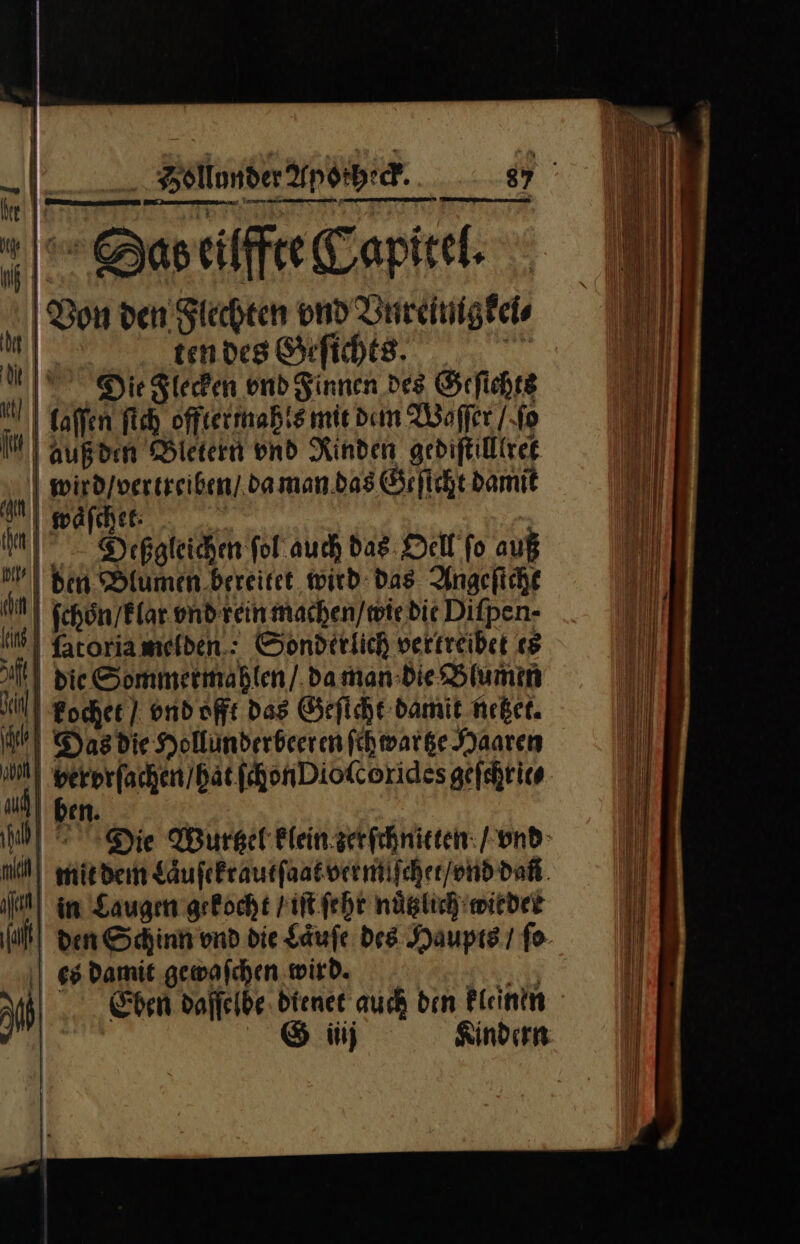 Hollunder Apotheck. 87
Das eilffte Capitel.
Von den Flechten vnd Vnreinigkei⸗
ten des Gesichts.
Die Flecken vnd Finnen des Gesichts
lassen sich offtermahls mit dem Wasser / so
auß den Bletern vnd Rinden gedistilliret
wird / vertreiben / da man das Gesicht damit
wäschet.
Deßgleichen sol auch das Oell so auß
den Blumen bereitet wird das Angesicht
schön / klar vnd rein machen / wie die Dispen-
satoria melden: Sonderlich vertreibet es
die Sommermahlen / da man die Blumen
kochet / vnd offt das Gesicht damit netzet.
Das die Hollunderbeeren schwartze Haaren
vervrsachen / hat schon Dioscorides geschrie⸗
ben.
Die Wurtzel klein zerschnitten / vnd
mit dem Läusekrautsaat vermischet / vnd dañ
in Laugen gekocht / ist sehr nützlich wieder
den Schinn vnd die Läuse des Haupts / so
es damit gewaschen wird.
Eben dasselbe dienet auch den kleinen
G iiij Kindern